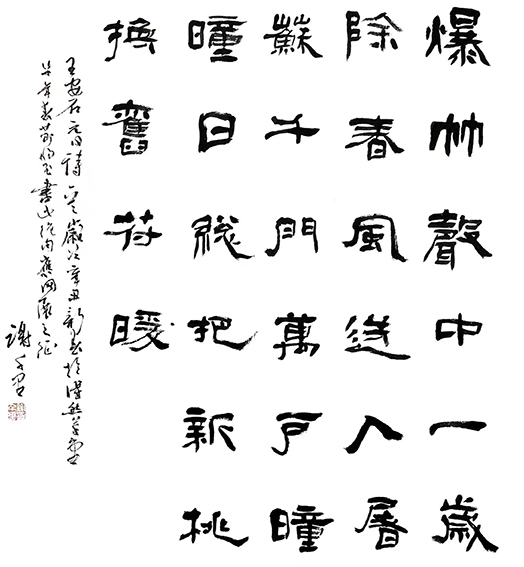 爆竹聲中一歲
除春風送入屠
蘇千門萬户曈
曈日總把新桃
換舊符暖
王安石元日詩 歲次辛丑新春於
牛年春 書此
謝